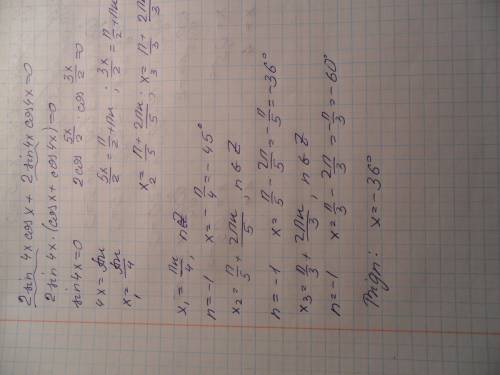 2 sin 4x cos x + 2 sin 4x cos 4x = 0
2 sin 4x · (cos x + cos 4x) = 0
sin 4x = 0    2 cos 5x/2 · cos 3x/2 = 0
4x = πn    5x/2 = π/2 + πn ; 3x/2 = π/2 + πn
x₁ = πn/4    x₂ = π/5 + 2πn/5 ; x₃ = π/3 + 2πn/3
x₁ = πn/4, n∈Z
n = -1    x = -π/4 = -45°
x₂ = π/5 + 2πn/5, n∈Z
n = -1    x = π/5 - 2π/5 = -π/5 = -36°
x₃ = π/3 + 2πn/3, n∈Z
n = -1    x = π/3 - 2π/3 = -π/3 = -60°
Відп: x = -36°